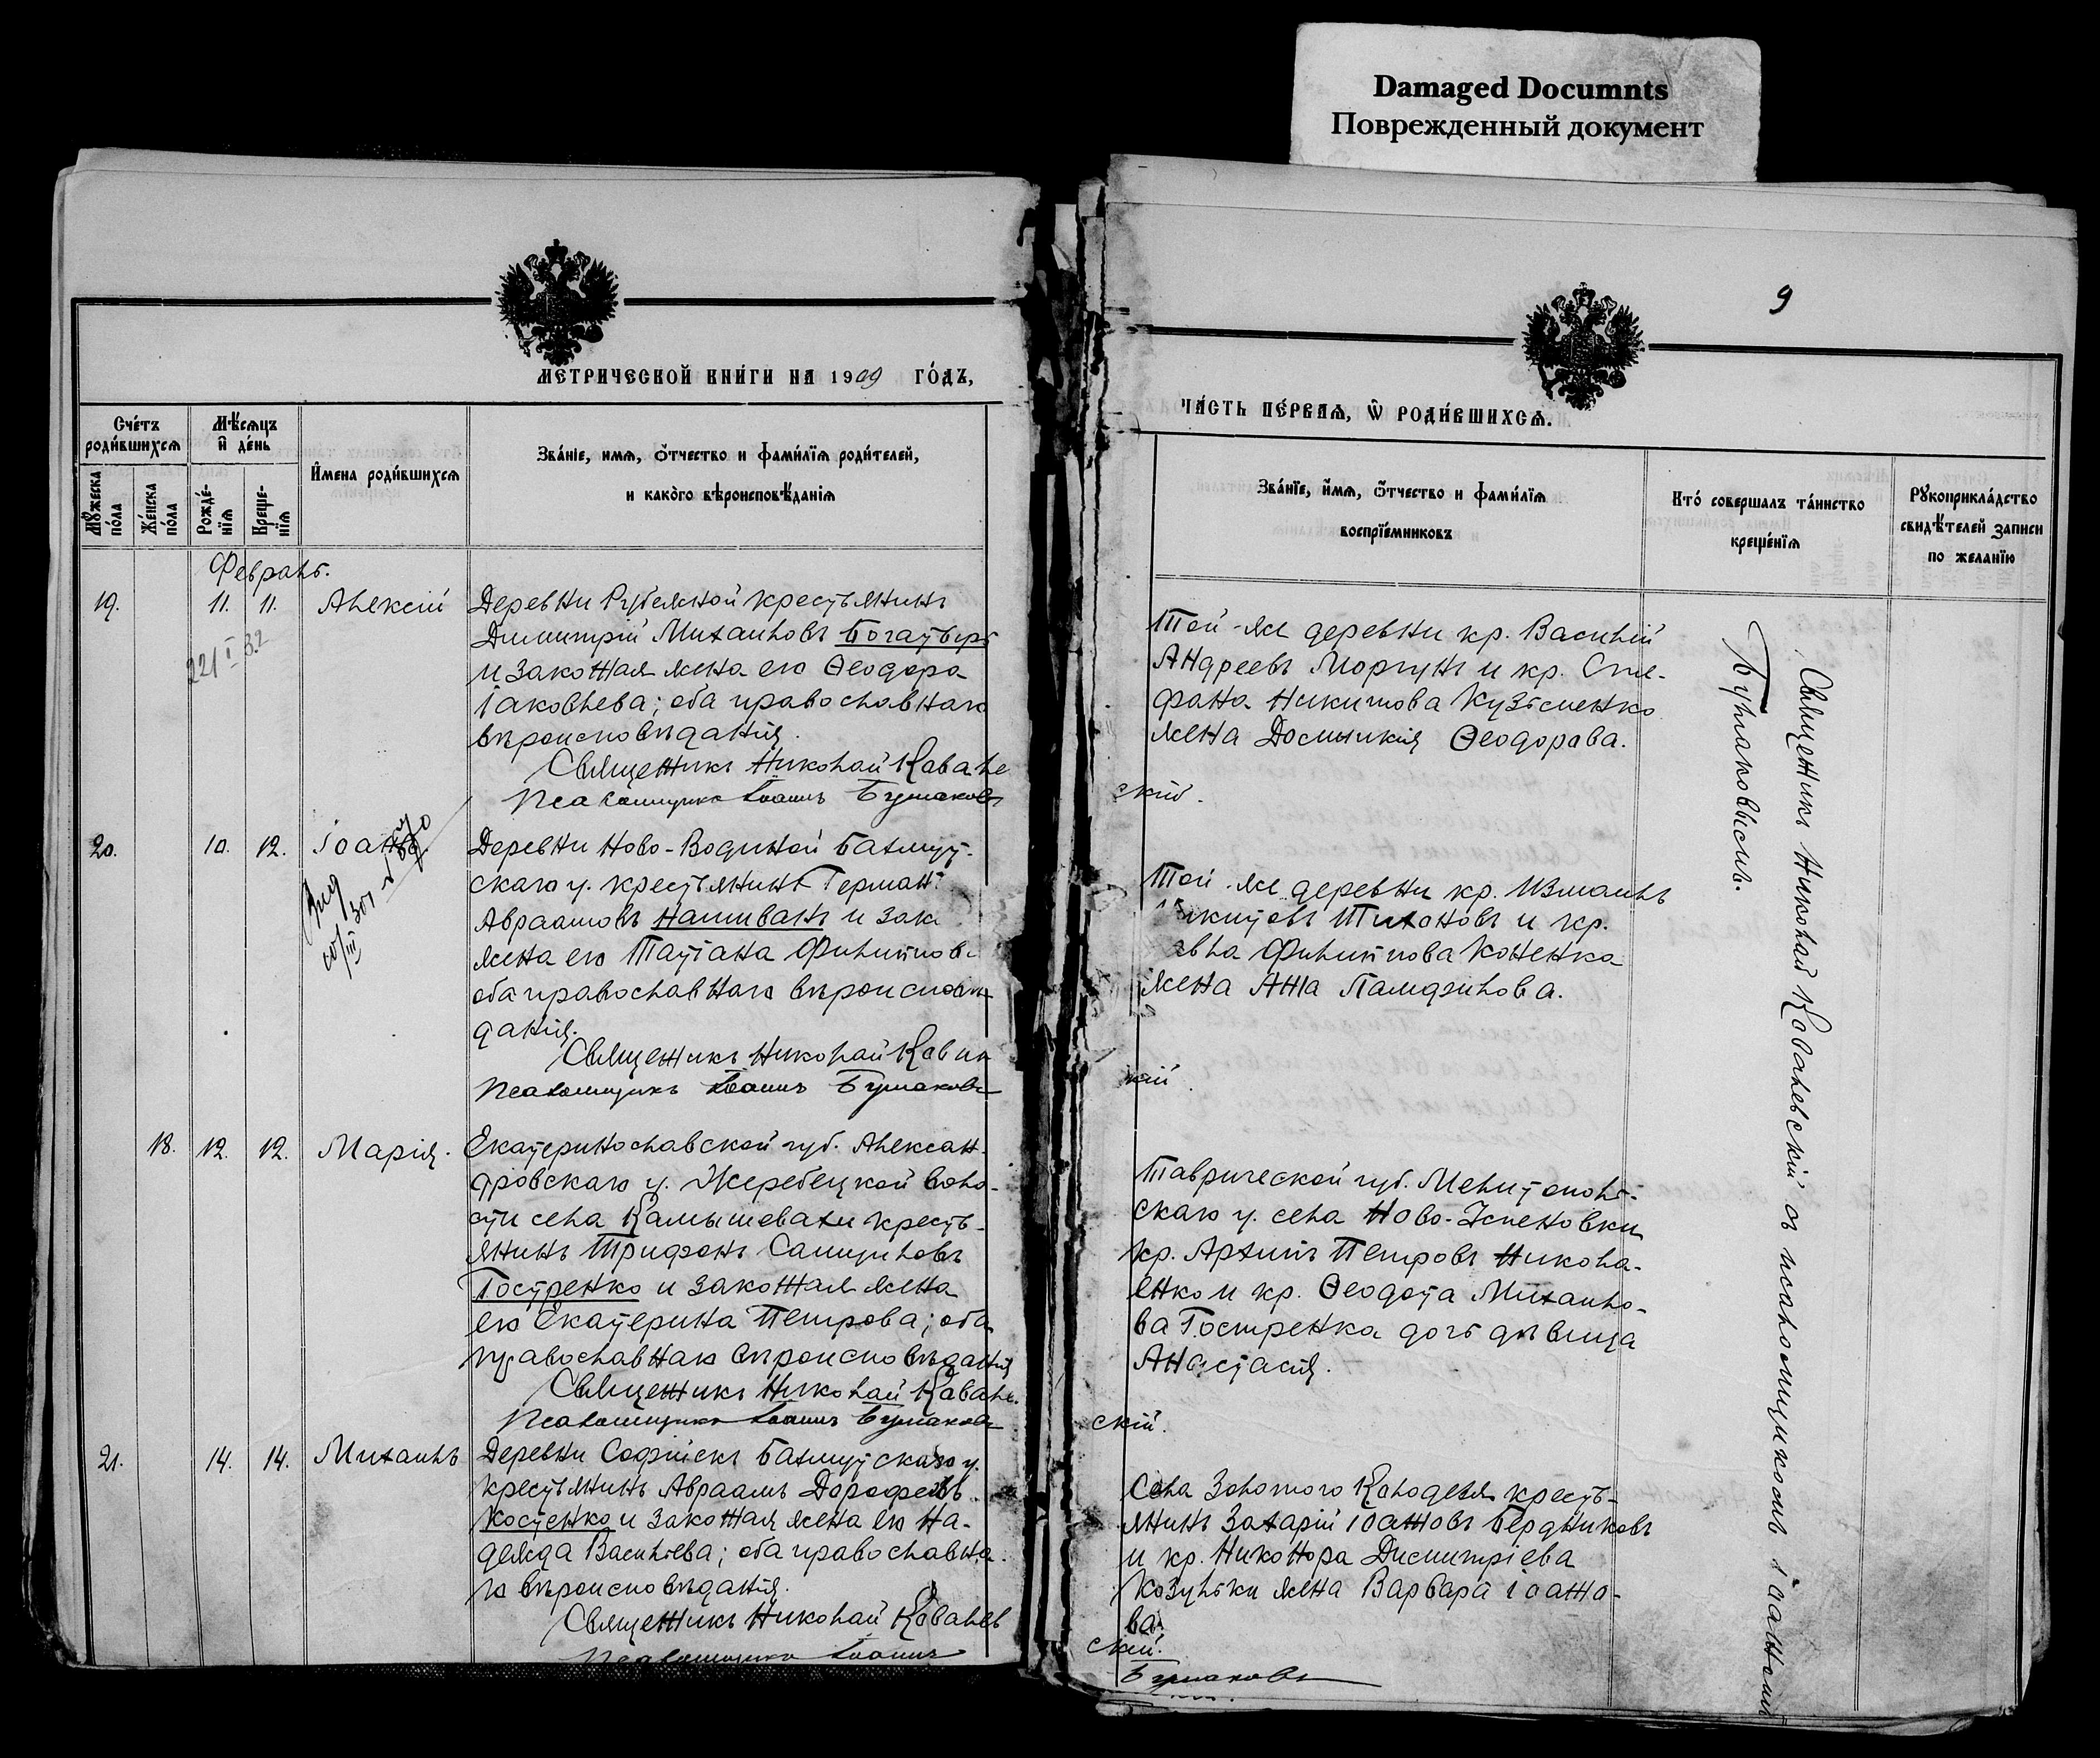 Damaged Documnts
Поврежденный документ
МЕТРИЧЕСКОЙ КНИГИ НА 1909 ГОДЪ,
Счетъ родившихся
Мужеска пола
Женска пола
Мѣсяцъ и день
Рожденія
Крещенія
Имена родившихся
Званіе, имя, отчество и фамилія родителей,
и какого вѣроисповѣданія
Февраль.
19.
11. 11.
Алексій
221
Деревни Рубежной крестьянинъ
Димитрій Михаиловъ Богатырь
и законная жена его Ѳеодора
Іаковлева; оба православнаго
вѣроисповѣданія.
Священникъ Николай Ковале
Псаломщикъ Іоаннъ Бушаковъ
20.
10. 12.
Іоаннъ
Деревни Ново-Водяной Бахмут-
скаго у. крестьянинъ Герман
Авраамовъ Наливанъ и зак
жена его Татіана Филиппов
оба православнаго вѣроисповѣ
данія.
Священникъ Николай Ков
Псаломщикъ Іоаннъ Бушаковъ
18. 12. 12.
Марія.
Екатеринославской губ. Алексан-
дровскаго у. Жеребецкой воло-
сти села Камышевахи кресть-
янинъ Трифонъ Самуиловъ
Гостренко и законная жена
его Екатерина Петрова; оба
православнаго вѣроисповѣданія
Священникъ Николай Ковале
Псаломщикъ Іоаннъ Бушаковъ
21.
14. 14.
Михаилъ
Деревни Софійск Бахмутскаго у.
крестьянинъ Авраамъ Дорофеевъ
Костенко и законная жена его На-
дежда Васильева; оба православна
го вѣроисповѣданія.
Священникъ Николай Ковалев
Псаломщикъ Іоаннъ
9
ЧАСТЬ ПЕРВАЯ, Ѡ РОДИВШИХСЯ.
Званіе, имя, отчество и фамилія
воспріемниковъ
Кто совершалъ таинство
крещенія
Рукоприкладство
свидѣтелей записи
по желанію
Той-же деревни кр. Василій
Андреевъ Моргунъ и кр. Сте-
фана Никитова Кузьменко
жена Домникія Ѳеодорова.
скій.
Той-же деревни кр. Измаилъ
икитовъ Тихоновъ и кр.
авла Филиппова Коненка
жена Анна Памфилова.
кій.
Таврической губ. Мелитополь-
скаго у. села Ново-Успеновки
кр. Архипъ Петровъ Никола-
енко и кр. Ѳеодота Михаило-
ва Гостренка дочь дѣвица
Анастасія.
скій.
Села Золотого Колодезя кресть-
янинъ Захарій Іоанновъ Бердниковъ
и кр. Никонора Димитріева
Козульки жена Варвара Іоанно-
ва.
скій.
Бушаковъ
Священникъ Николай Ковалевскій съ псаломщикомъ Іоанномъ
Бушаковымъ.